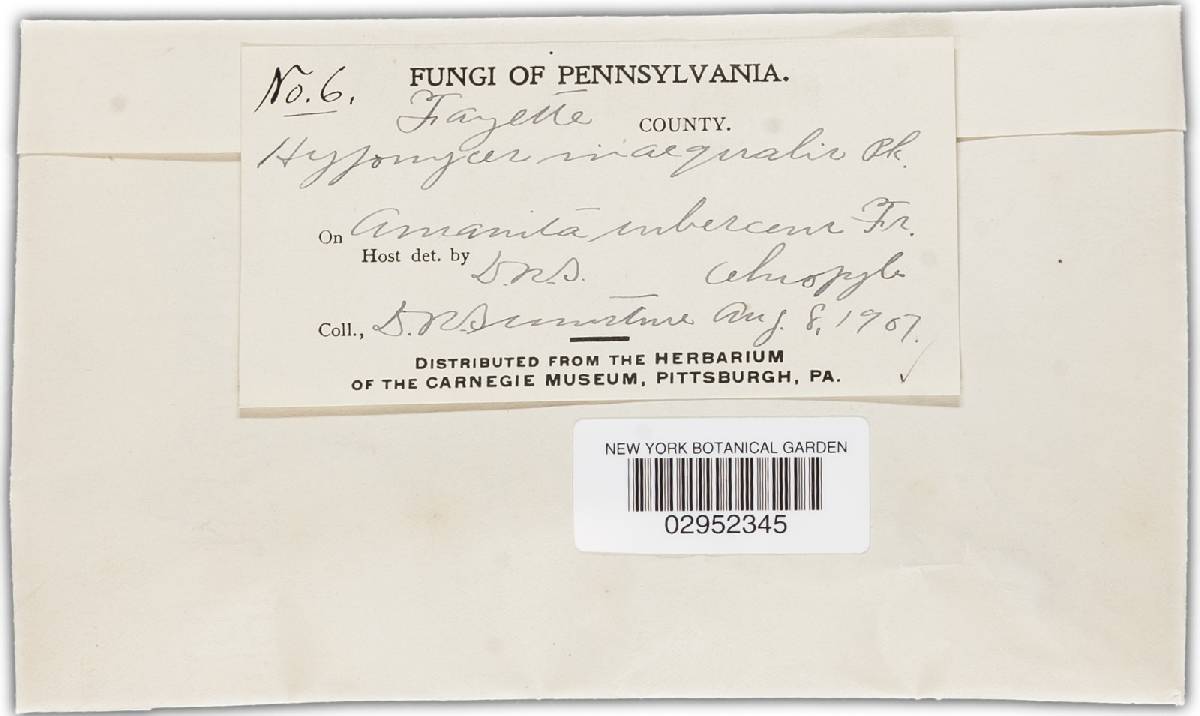 No. 6.
FUNGI OF PENNSYLVANIA.
Fayette COUNTY.
Hypomyces inaequalis Pk.
On Amanita rubescens Fr.
Host det. by D.R.S. Ohiopyle
Coll., D.R. Sumstine Aug. 8, 1907.
DISTRIBUTED FROM THE HERBARIUM
OF THE CARNEGIE MUSEUM, PITTSBURGH, PA.
NEW YORK BOTANICAL GARDEN
02952345